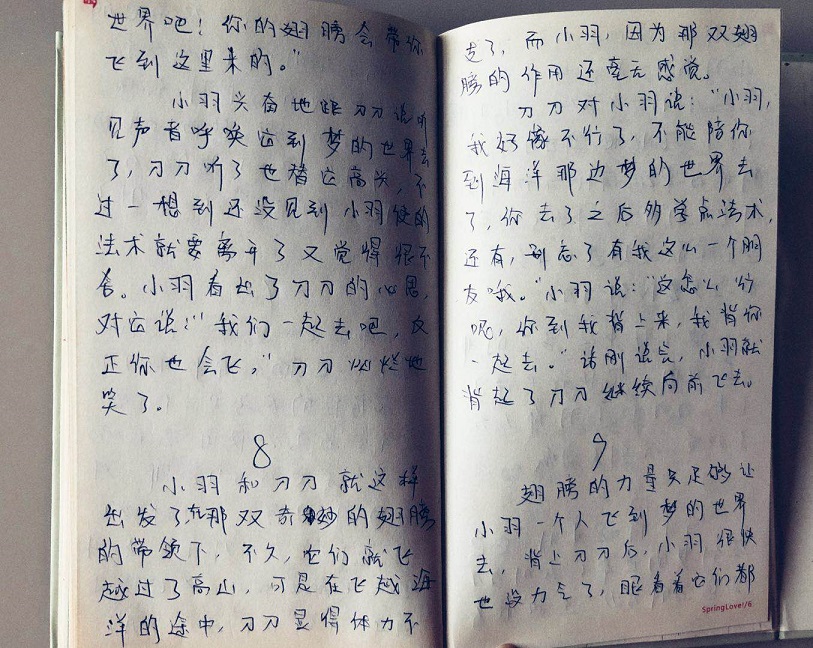 世界吧！你的翅膀会带你
飞到这里来的。”
小羽兴奋地跟刀刀说听
见声音呼唤它到梦的世界去
了，刀刀听了也替它高兴，不
过一想到还没见到小羽使的
法术就要离开了又觉得很不
舍。小羽看出了刀刀的心思，
对它说：“我们一起去吧，反
正你也会飞。”刀刀灿烂地
笑了。
8
小羽和刀刀就这样
出发了，在那双奇妙的翅膀
的带领下，不久，它们就飞
越过了高山，可是在飞越海
洋的途中，刀刀显得体力不
支了，而小羽，因为那双翅
膀的作用还毫无感觉。
刀刀对小羽说：“小羽，
我好像不行了，不能陪你
到海洋那边梦的世界去
了，你去了之后多学点法术，
还有，别忘了有我这么一个朋
友哦。”小羽说：“这怎么行
呢，你到我背上来，我背你
一起去。”话刚说完，小羽就
背起了刀刀继续向前飞去。
9
翅膀的力量只足够让
小羽一个人飞到梦的世界
去，背上刀刀后，小羽很快
也没力气了，眼看着它们都
SpringLover/6